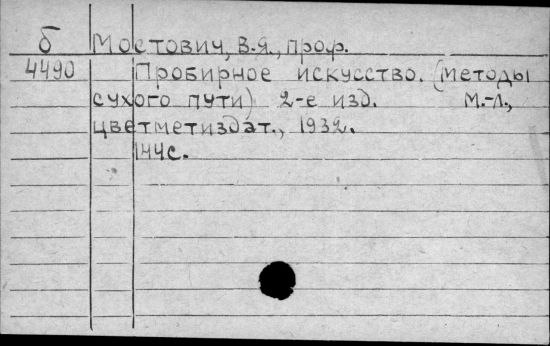 б Мостович, В.Я., проф.
4490 Пробирное искусство. (методы
сухого пути) 2-е изд. М.-Л.,
цветметиздат., 1932.
144с.